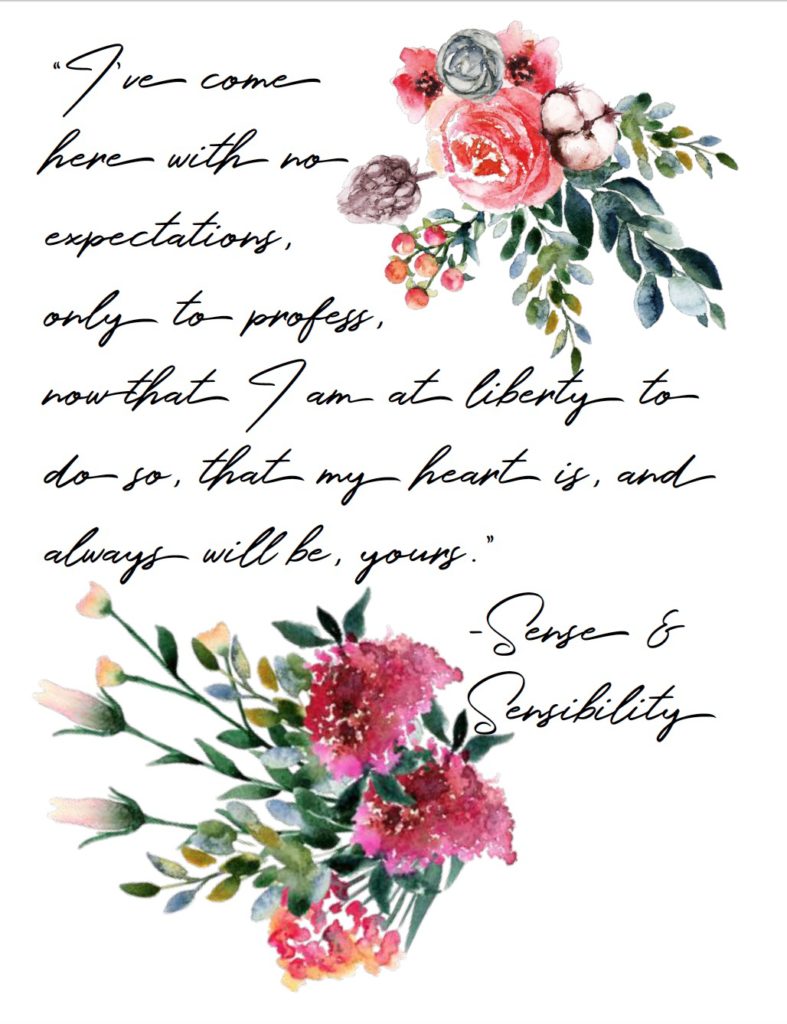 “I've come
here with no
expectations,
only to profess,
now that I am at liberty to
do so, that my heart is, and
always will be, yours.”
-Sense &
Sensibility